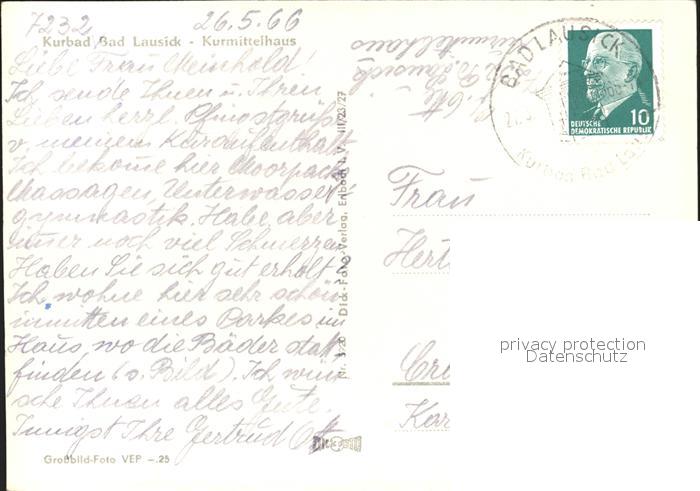 7232 26.5.66
Kurbad Bad Lausick - Kurmittelhaus
Liebe Frau Meinhold!
Ich sende Ihnen u. Ihren
Lieben herzl. Pfingstgrüße
v. meinem Kuraufenthalt
Ich bekome hier Moorpack
Massagen, Unterwasser
gymnastik. Habe aber
imer noch viel Schmerzen
Haben Sie sich gut erholt?
Ich wohne hier sehr schön
inmitten eines Parkes im
Haus, wo die Bäder statt
finden (s. Bild). Ich wün
sche Ihnen alles Gute.
Innigst Ihre Gertrud Ott
Großbild-Foto VEP -.25
Dick-Foto-Verlag, Erlbach i. V. III/23/27
Kurmittelhaus
B. Lausick
BAD LAUSICK
10
DEUTSCHE
DEMOKRATISCHE REPUBLIK
Frau
Hert
Kar
privacy protection
Datenschutz